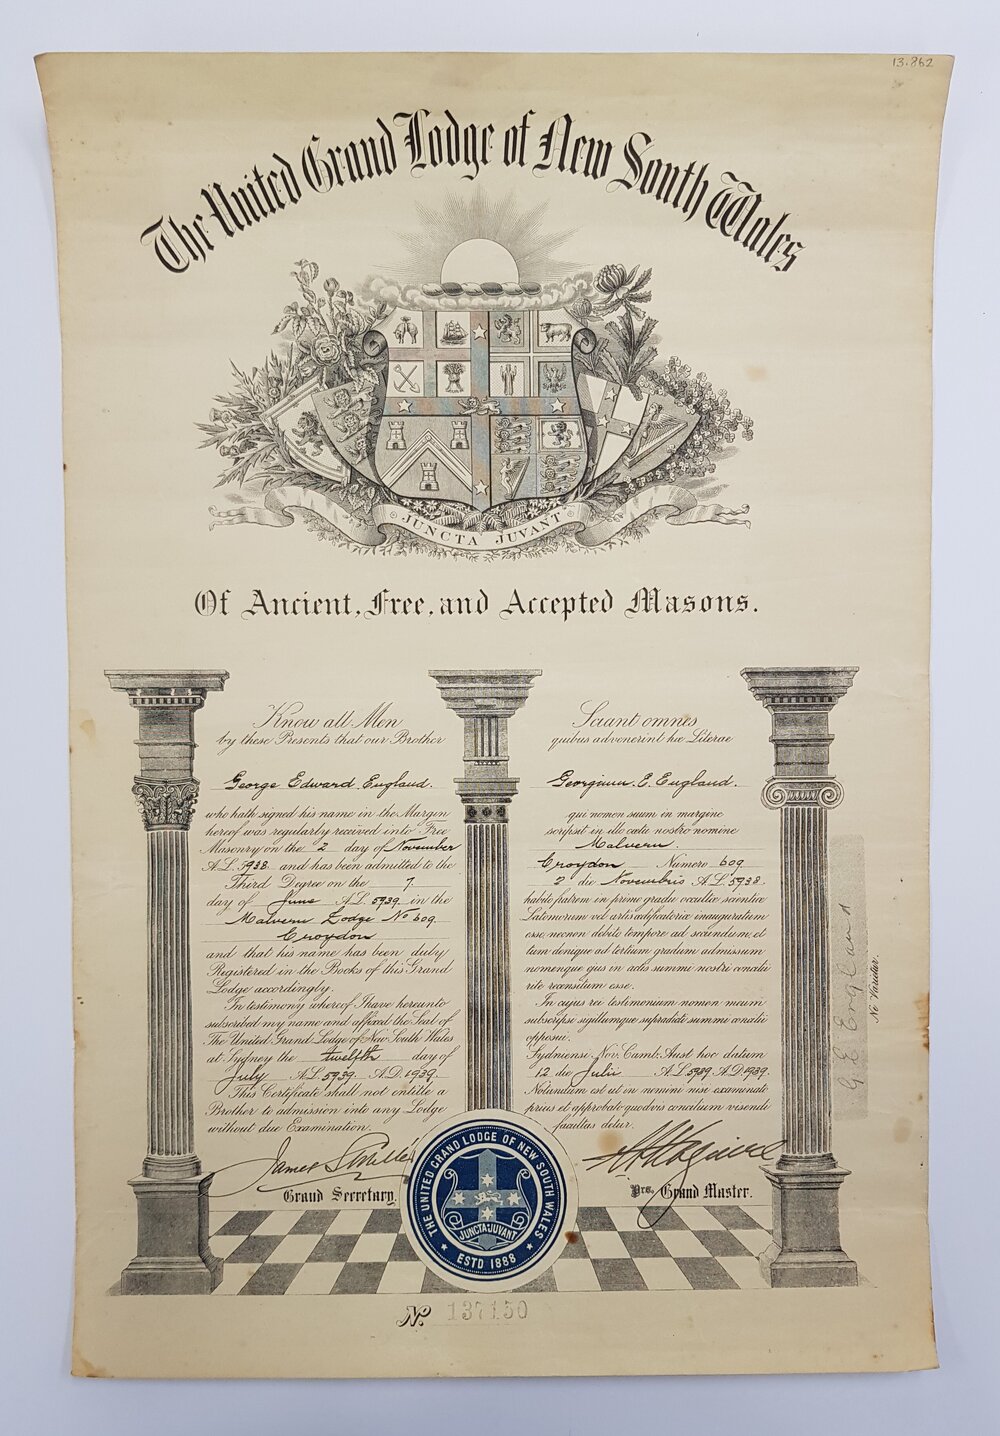 13.862
The United Grand Lodge of New South Wales
JUNCTA JUVANT
Of Ancient, Free, and Accepted Masons.
Know all Men
by these Presents that our Brother
George Edward England.
who hath signed his name in the Margin
hereof was regularly received into Free
Masonry on the 2 day of November
A.L. 5938 and has been admitted to the
Third Degree on the 7
day of June A.L. 5939 in the
Malvern Lodge No 609
Croydon
and that his name has been duly
Registered in the Books of this Grand
Lodge accordingly.
In testimony whereof I have hereunto
subscribed my name and affixed the Seal of
The United Grand Lodge of New South Wales
at Sydney the twelfth day of
July A.L. 5939. A.D. 1939.
This Certificate shall not entitle a
Brother to admission into any Lodge
without due Examination.
James S Miller
Grand Secretary.
Sciant omnes
quibus advenerint hæ Literae
E. England.
qui nomen suum in margine
scripsit in illo cœtu nostro nomine
Malvern.
Croydon Numero 609
2 die Novembris A.L. 5938.
habito fratrem in primo gradu occultæ scientiæ
Latomorum vel artis ædificatoriæ inauguratum
esse, necnon debito tempore ad secundum, et
tum denique ad tertium gradum admissum
nomenque ejus in actis summi nostri concilii
rite recensitum esse.
In cujus rei testimonium nomen meum
subscripsi sigillumque supradicti summi concilii
apposui.
Sydneiensi Nov. Camb. Aust hoc datum
12 die Julii A.L. 5939 A.D. 1939.
Notandum est ut in nemini nisi examinato
prius et approbato quodvis concilium visendi
facultas detur.
Pro. Grand Master.
G. E. England
Ne Varietur.
THE UNITED GRAND LODGE OF NEW SOUTH WALES
JUNCTA JUVANT
ESTD 1888
No. 137150